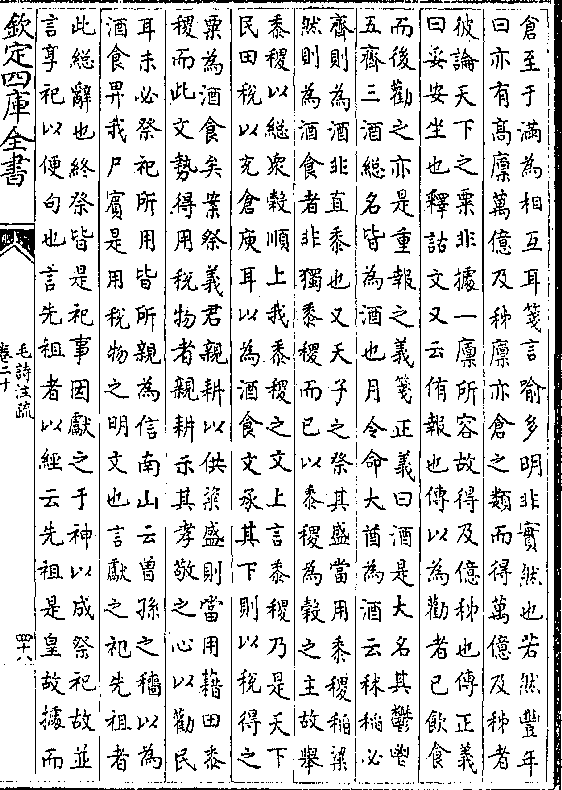 倉至于滿為相互耳箋言喻多明非實然也若然豐年
曰亦有高廩萬億及秭廩亦倉之類而得萬億及秭者
彼論天下之粟非據一廩所容故得及億秭也傳正義
曰妥安坐也釋詁文又云侑報也傳以為勸者已飲食
而後勸之亦是重報之義箋正義曰酒是大名其鬱鬯
五齊三酒總名皆為酒也月令命大酋為酒云秫稻必
齊則為酒非直黍也又天子之祭其盛當用黍稷稻粱
然則為酒食者非獨黍稷而已以黍稷為榖之主故舉
黍稷以總衆榖順上我黍稷之文上言黍稷乃是天下
民田稅以充倉庾耳以為酒食文承其下則以稅得之
粟為酒食矣案祭義君親耕以供粢盛則當用藉田黍
稷而此文勢得用稅物者親耕示其孝敬之心以勸民
耳未必祭祀所用皆所親為信南山云曽孫之穡以為
酒食畀我尸賔是用稅物之明文也言獻之祀先祖者
此總辭也終祭皆是祀事因獻之于神以成祭祀故並
言享祀以便句也言先祖者以經云先祖是皇故據而
欽定四庫全書
毛詩注疏
卷二十
四十八